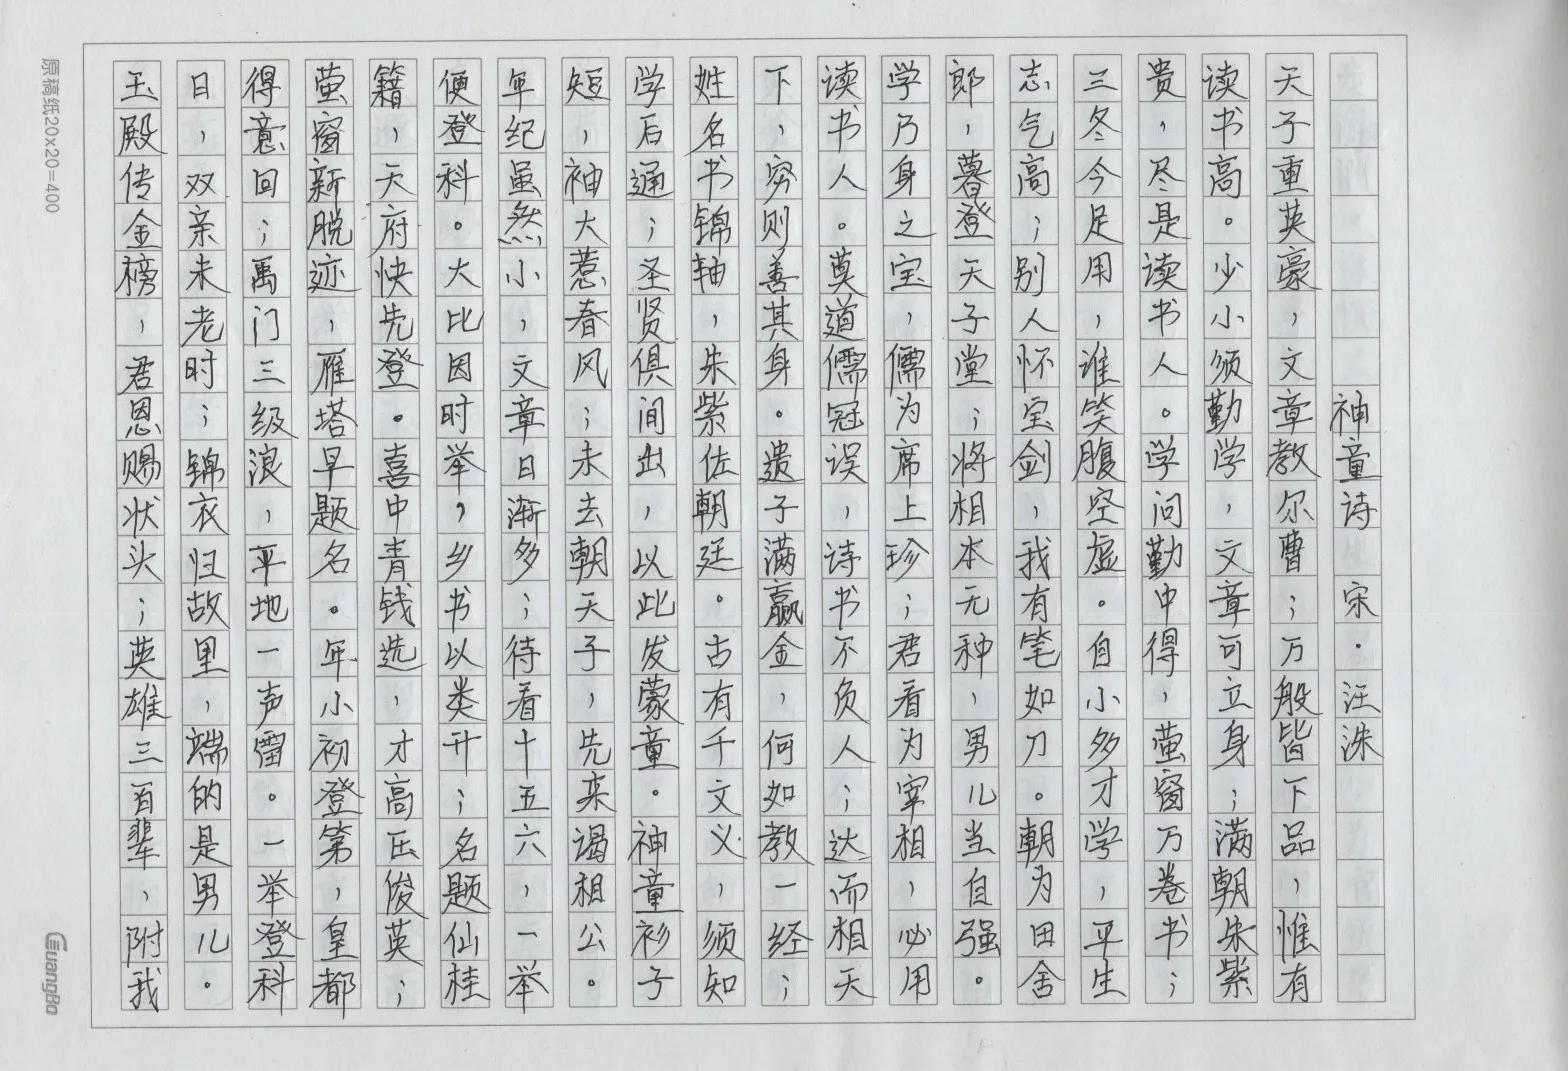 神童诗 宋·汪洙
天子重英豪，文章教尔曹；万般皆下品，惟有
读书高。少小须勤学，文章可立身；满朝朱紫
贵，尽是读书人。学问勤中得，萤窗万卷书；
三冬今足用，谁笑腹空虚。自小多才学，平生
志气高；别人怀宝剑，我有笔如刀。朝为田舍
郎，暮登天子堂；将相本无种，男儿当自强。
学乃身之宝，儒为席上珍；君看为宰相，必用
读书人。莫道儒冠误，诗书不负人；达而相天
下，穷则善其身。遗子满赢金，何如教一经；
姓名书锦轴，朱紫佐朝廷。古有千文义，须知
学后通；圣贤俱间出，以此发蒙童。神童衫子
短，袖大惹春风；未去朝天子，先来谒相公。
年纪虽然小，文章日渐多；待看十五六，一举
便登科。大比因时举，乡书以类升；名题仙桂
籍，天府快先登。喜中青钱选，才高压俊英；
萤窗新脱迹，雁塔早题名。年小初登第，皇都
得意回；禹门三级浪，平地一声雷。一举登科
日，双亲未老时；锦衣归故里，端的是男儿。
玉殿传金榜，君恩赐状头；英雄三百辈，附我
原稿纸20x20=400
GuangBo